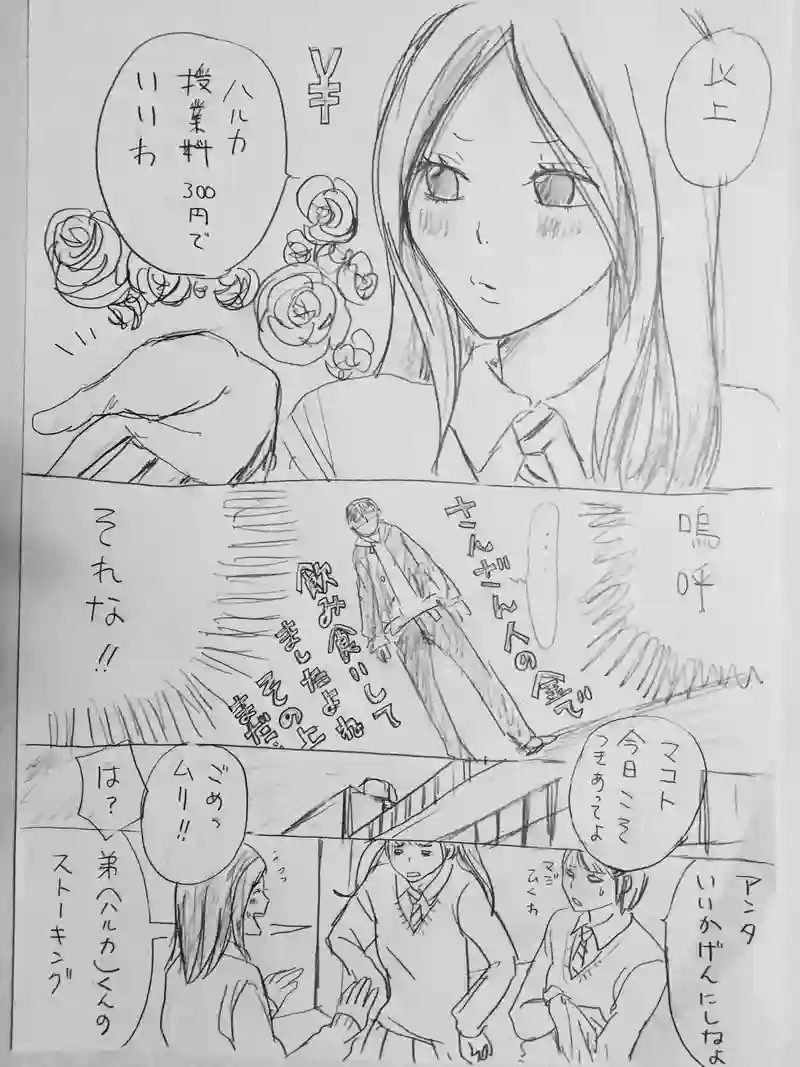 以上
¥
ハルカ
授業料300円で
いいわ
嗚呼
……
さんざん人の金で
飲み食いして
ましたよね
その上
まだ…
それな!!
マコト
今日こそ
つきあってよ
ごめっ
ムリ!!
は?
アンタ
いいかげんにしなよ
マジ
ひくわ
弟(ハルカ)くんの
ストーキング